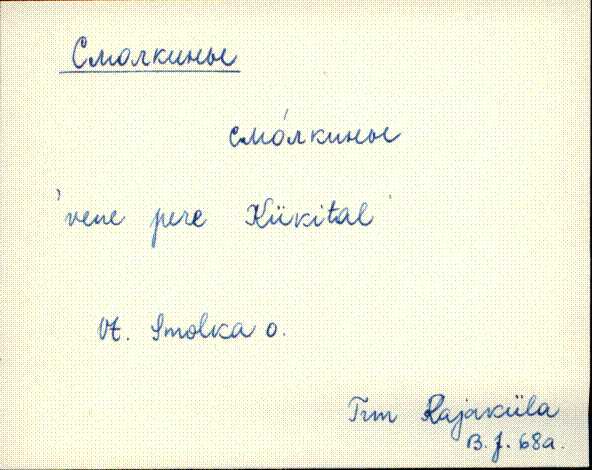 Смолкины
смо́лкины
'vene pere Kükital'
Vt. Smolka o.
Trm Rajaküla
B.J. 68a.